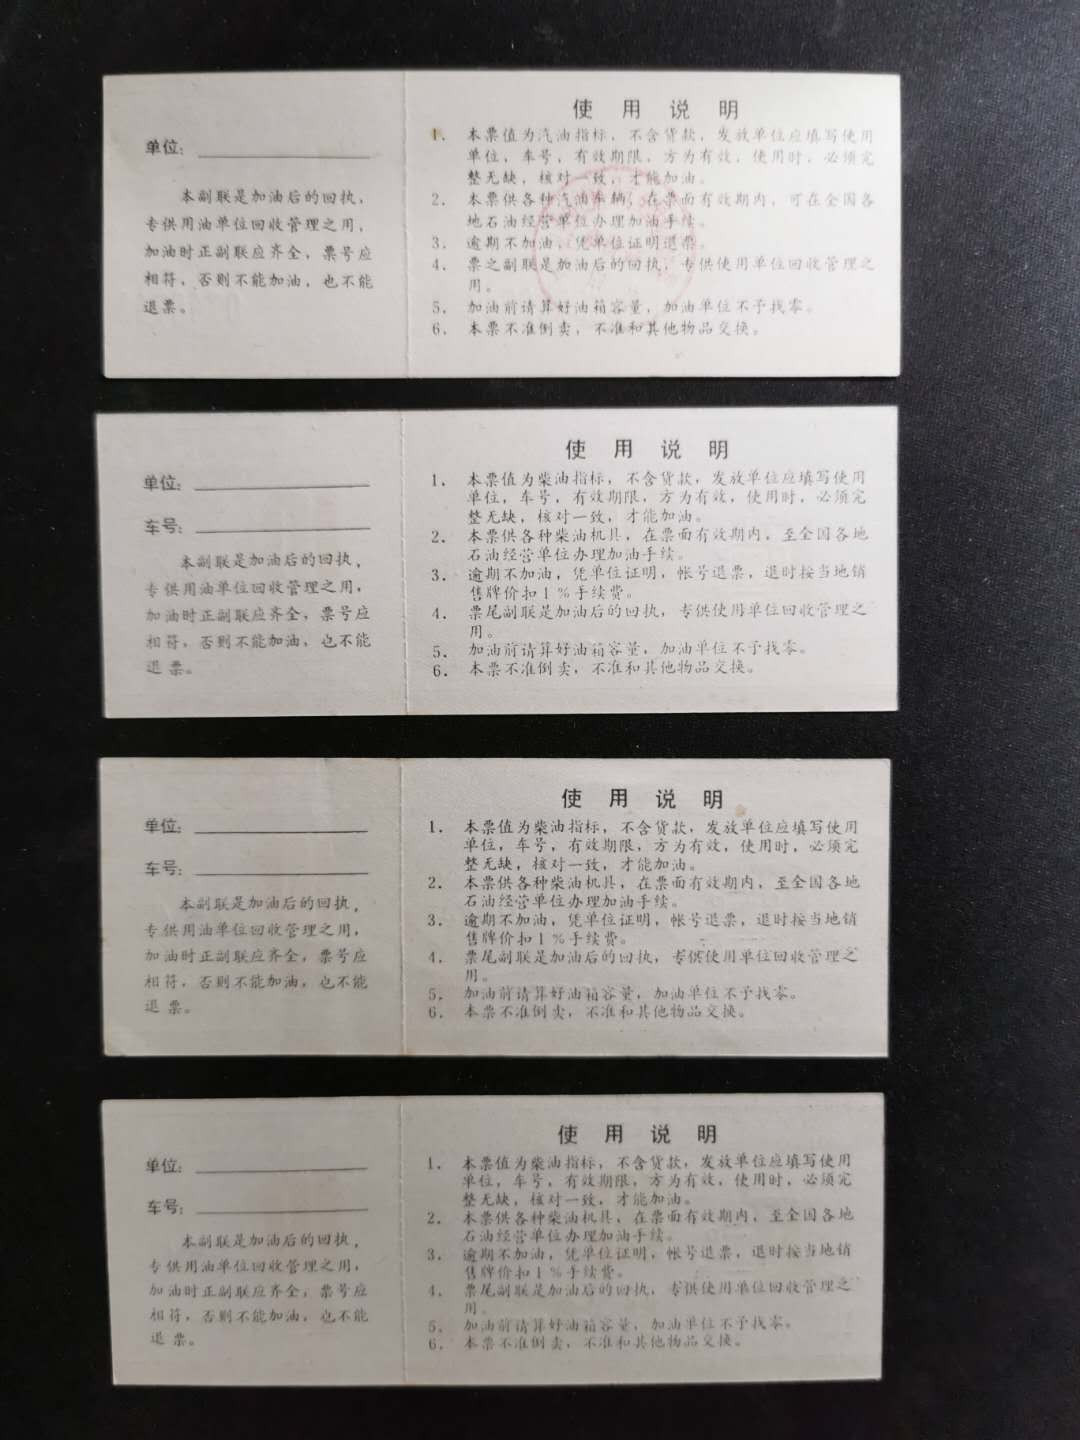 单位:
本副联是加油后的回执,
专供用油单位回收管理之用,
加油时正副联应齐全,票号应
相符,否则不能加油,也不能
退票。
使用说明
1. 本票值为汽油指标,不含货款,发放单位应填写使用
单位,车号,有效期限,方为有效,使用时,必须完
整无缺,核对一致,才能加油。
2. 本票供各种汽油车辆,在票面有效期内,可在全国各
地石油经营单位办理加油手续。
3. 逾期不加油,凭单位证明退票。
4. 票之副联是加油后的回执,专供使用单位回收管理之
用。
5. 加油前请算好油箱容量,加油单位不予找零。
6. 本票不准倒卖,不准和其他物品交换。
单位:
车号:
本副联是加油后的回执,
专供用油单位回收管理之用,
加油时正副联应齐全,票号应
相符,否则不能加油,也不能
退票。
使用说明
1. 本票值为柴油指标,不含货款,发放单位应填写使用
单位,车号,有效期限,方为有效,使用时,必须完
整无缺,核对一致,才能加油。
2. 本票供各种柴油机具,在票面有效期内,至全国各地
石油经营单位办理加油手续。
3. 逾期不加油,凭单位证明,帐号退票,退时按当地销
售牌价扣1%手续费。
4. 票尾副联是加油后的回执,专供使用单位回收管理之
用。
5. 加油前请算好油箱容量,加油单位不予找零。
6. 本票不准倒卖,不准和其他物品交换。
单位:
车号:
本副联是加油后的回执,
专供用油单位回收管理之用,
加油时正副联应齐全,票号应
相符,否则不能加油,也不能
退票。
使用说明
1. 本票值为柴油指标,不含货款,发放单位应填写使用
单位,车号,有效期限,方为有效,使用时,必须完
整无缺,核对一致,才能加油。
2. 本票供各种柴油机具,在票面有效期内,至全国各地
石油经营单位办理加油手续。
3. 逾期不加油,凭单位证明,帐号退票,退时按当地销
售牌价扣1%手续费。
4. 票尾副联是加油后的回执,专供使用单位回收管理之
用。
5. 加油前请算好油箱容量,加油单位不予找零。
6. 本票不准倒卖,不准和其他物品交换。
单位:
车号:
本副联是加油后的回执,
专供用油单位回收管理之用,
加油时正副联应齐全,票号应
相符,否则不能加油,也不能
退票。
使用说明
1. 本票值为柴油指标,不含货款,发放单位应填写使用
单位,车号,有效期限,方为有效,使用时,必须完
整无缺,核对一致,才能加油。
2. 本票供各种柴油机具,在票面有效期内,至全国各地
石油经营单位办理加油手续。
3. 逾期不加油,凭单位证明,帐号退票,退时按当地销
售牌价扣1%手续费。
4. 票尾副联是加油后的回执,专供使用单位回收管理之
用。
5. 加油前请算好油箱容量,加油单位不予找零。
6. 本票不准倒卖,不准和其他物品交换。